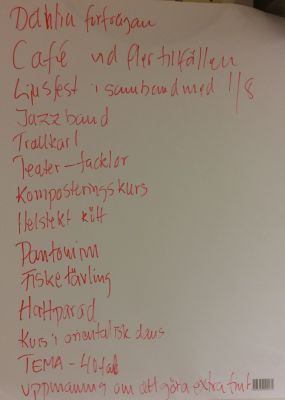 Dahlia förfrågan
Café vid fler tillfällen
Ljusfest i samband med 1/8
Jazzband
Trollkarl
Teater - facklor
Komposteringskurs
Helstekt kött
Pantomim
Fisketävling
Hattparad
Kurs i orientalisk dans
TEMA - 40tal
uppmaning om att göra extra fint